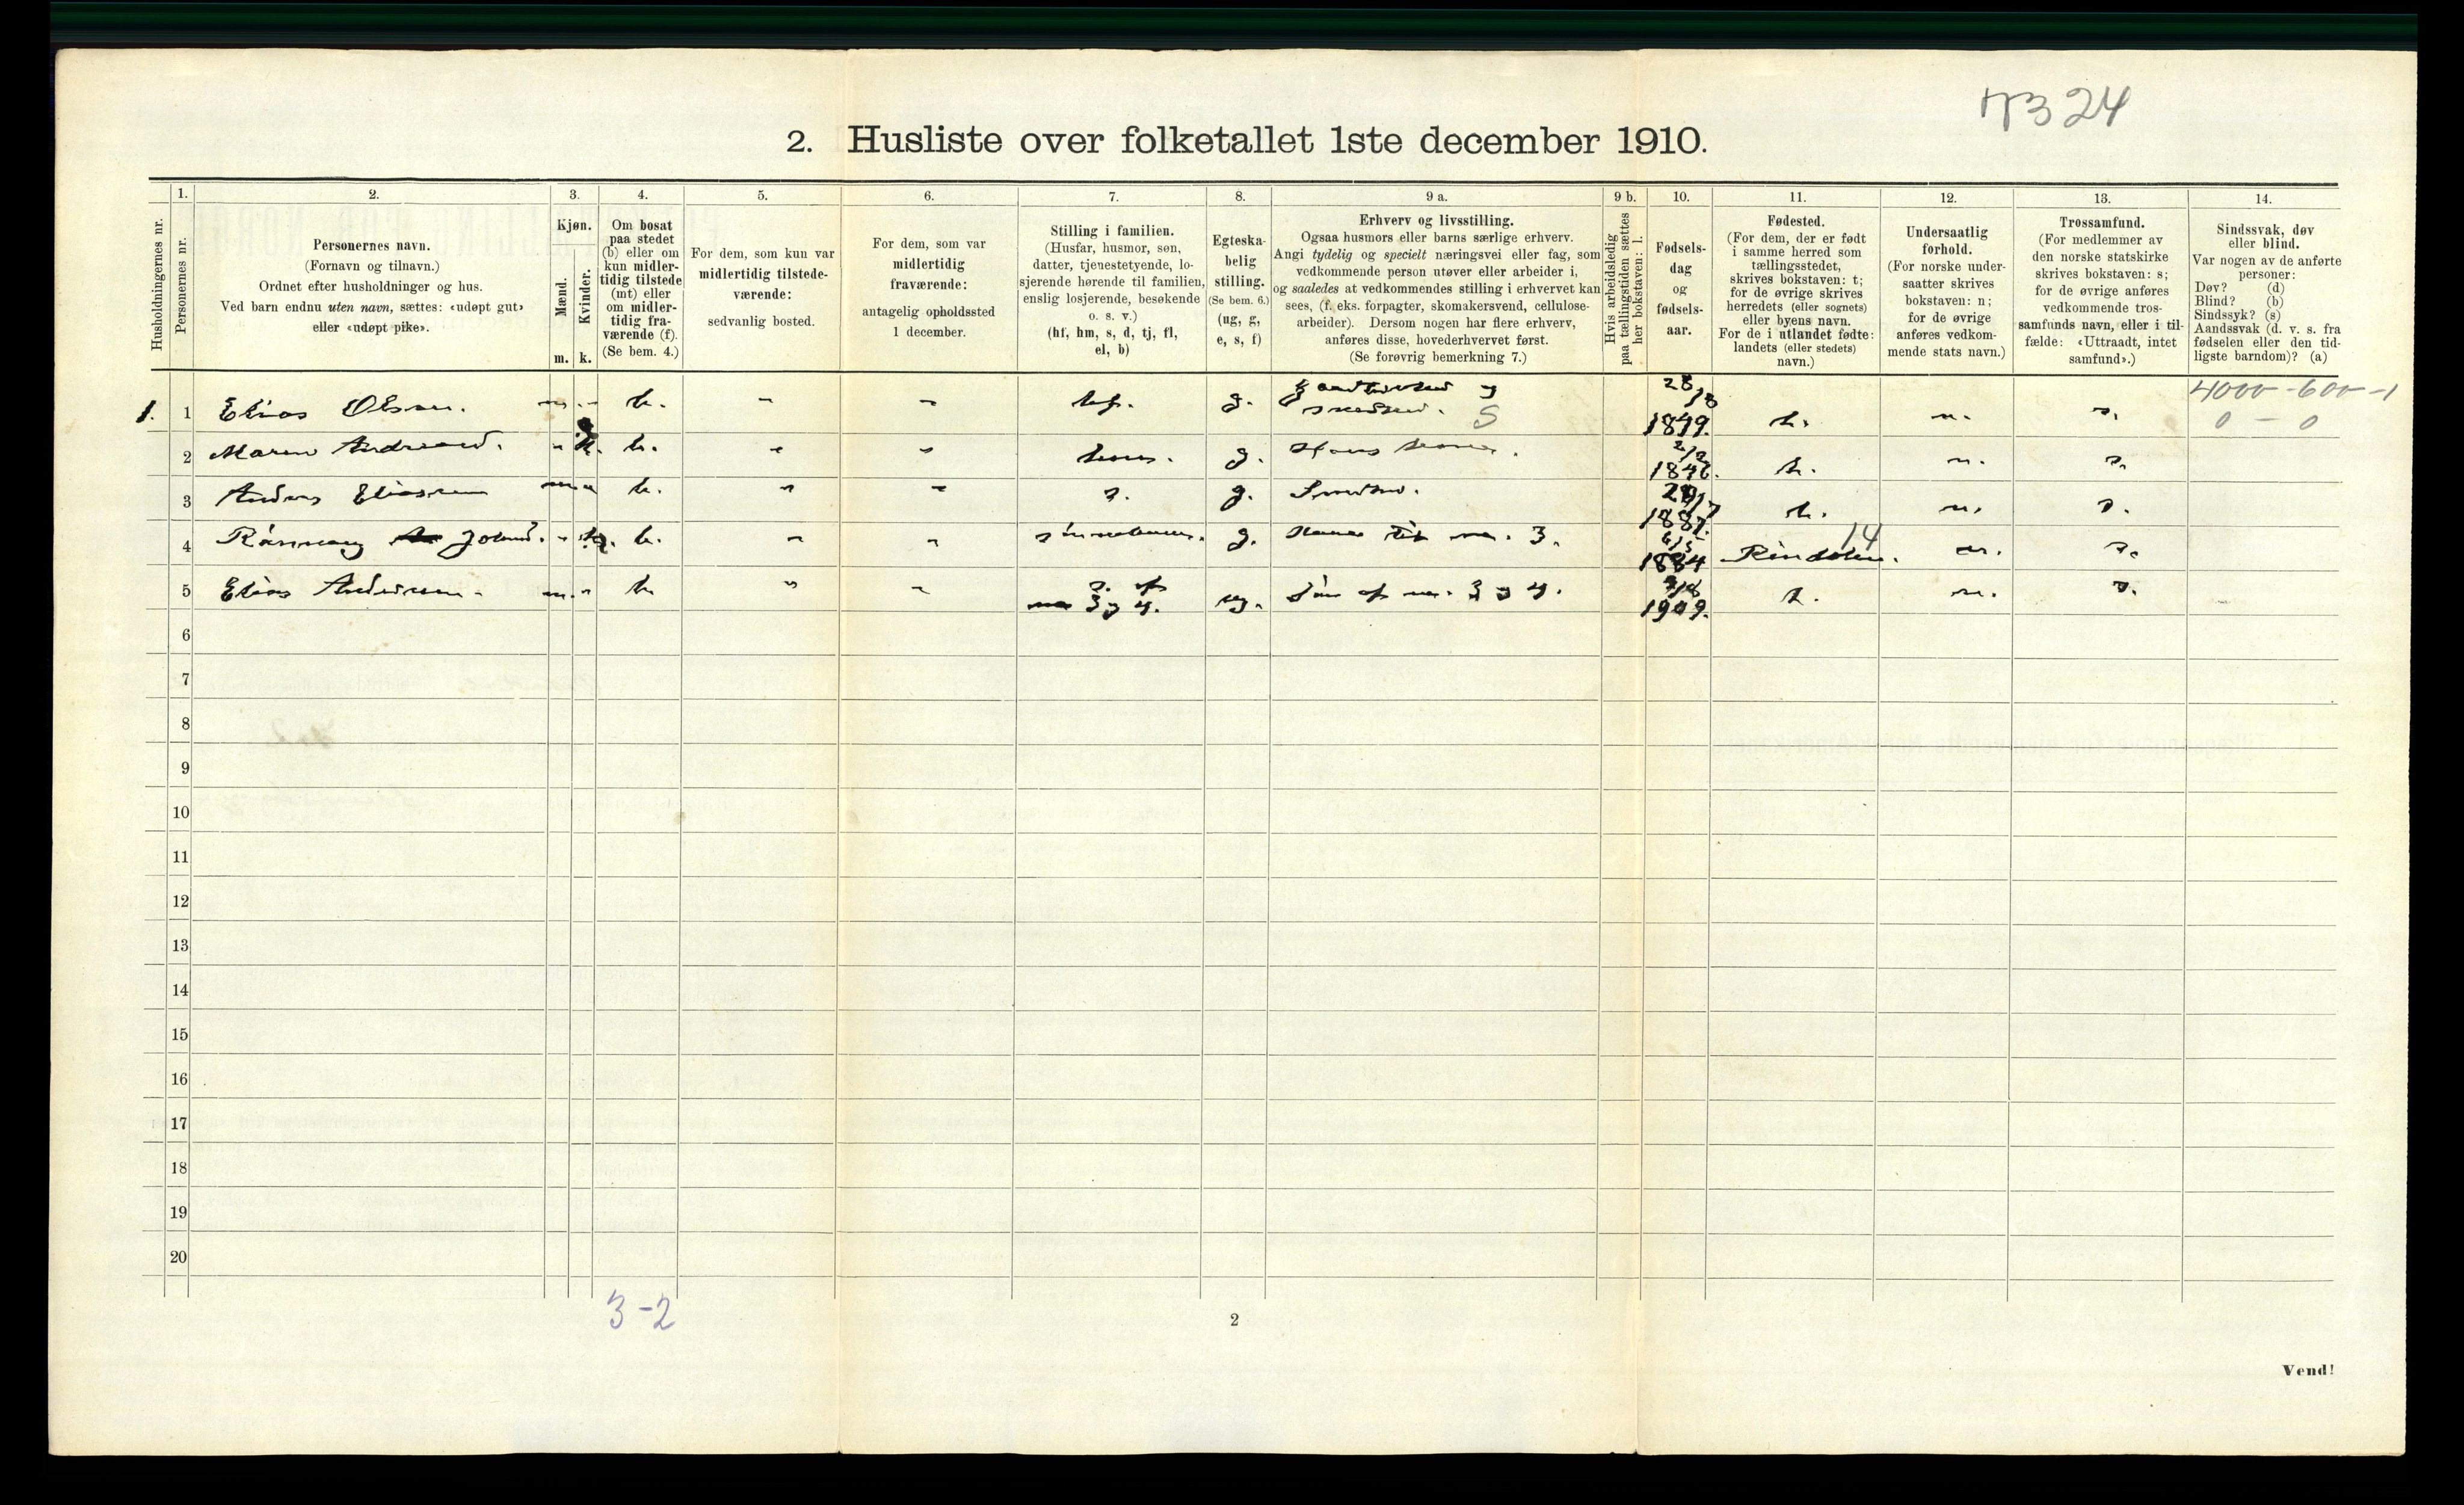 2. Husliste over folketallet 1ste december 1910.
1. 2. 3. 4. 5. 6. 7. 8. 9 a. 9 b. 10. 11. 12. 13. 14.
Husholdningernes nr.
Personernes nr.
Personernes navn.
(Fornavn og tilnavn.)
Ordnet efter husholdninger og hus.
Ved barn endnu uten navn, sættes: «udøpt gut»
eller «udøpt pike».
Kjøn.
Mænd.
Kvinder.
m. k.
Om bosat
paa stedet
(b) eller om
kun midler-
tidig tilstede
(mt) eller
om midler-
tidig fra-
værende (f).
(Se bem. 4.)
For dem, som kun var
midlertidig tilstede-
værende:
sedvanlig bosted.
For dem, som var
midlertidig
fraværende:
antagelig opholdssted
1 december.
Stilling i familien.
(Husfar, husmor, søn,
datter, tjenestetyende, lo-
sjerende hørende til familien,
enslig losjerende, besøkende
o. s. v.)
(hf, hm, s, d, tj, fl,
el, b)
Egteska-
belig
stilling.
(Se bem. 6.)
(ug, g,
e, s, f)
Erhverv og livsstilling.
Ogsaa husmors eller barns særlige erhverv.
Angi tydelig og specielt næringsvei eller fag, som
vedkommende person utøver eller arbeider i,
og saaledes at vedkommendes stilling i erhvervet kan
sees, (f. eks. forpagter, skomakersvend, cellulose-
arbeider). Dersom nogen har flere erhverv,
anføres disse, hovederhvervet først.
(Se forøvrig bemerkning 7.)
Hvis arbeidsledig
paa tællingstiden sættes
her bokstaven: l.
Fødsels-
dag
og
fødsels-
aar.
Fødested.
(For dem, der er født
i samme herred som
tællingsstedet,
skrives bokstaven: t;
for de øvrige skrives
herredets (eller sognets)
eller byens navn.
For de i utlandet fødte:
landets (eller stedets)
navn.)
Undersaatlig
forhold.
(For norske under-
saatter skrives
bokstaven: n;
for de øvrige
anføres vedkom-
mende stats navn.)
Trossamfund.
(For medlemmer av
den norske statskirke
skrives bokstaven: s;
for de øvrige anføres
vedkommende tros-
samfunds navn, eller i til-
fælde: «Uttraadt, intet
samfund».)
Sindssvak, døv
eller blind.
Var nogen av de anførte
personer:
Døv? (d)
Blind? (b)
Sindssyk? (s)
Aandssvak (d. v. s. fra
fødselen eller den tid-
ligste barndom)? (a)
1. 1 Elias Olsen. m. - b. - - hf. g. S 1849. t. n. s. 0 - 0
2 Maren - k. b. - - hm. g. 1846. t. n. s.
3 Anders Eliassen m - b. - - s. g. 1887. t. n. s.
4 - k. b. - - g. nr. 3. 1884 14 n. s.
5 Elias Andersen. m. - b - - s. af nr 3 og 4. ug. Søn af nr. 3 og 4. 1909. t. n. s.
6
7
8
9
10
11
12
13
14
15
16
17
18
19
20
3-2
2
Vend!